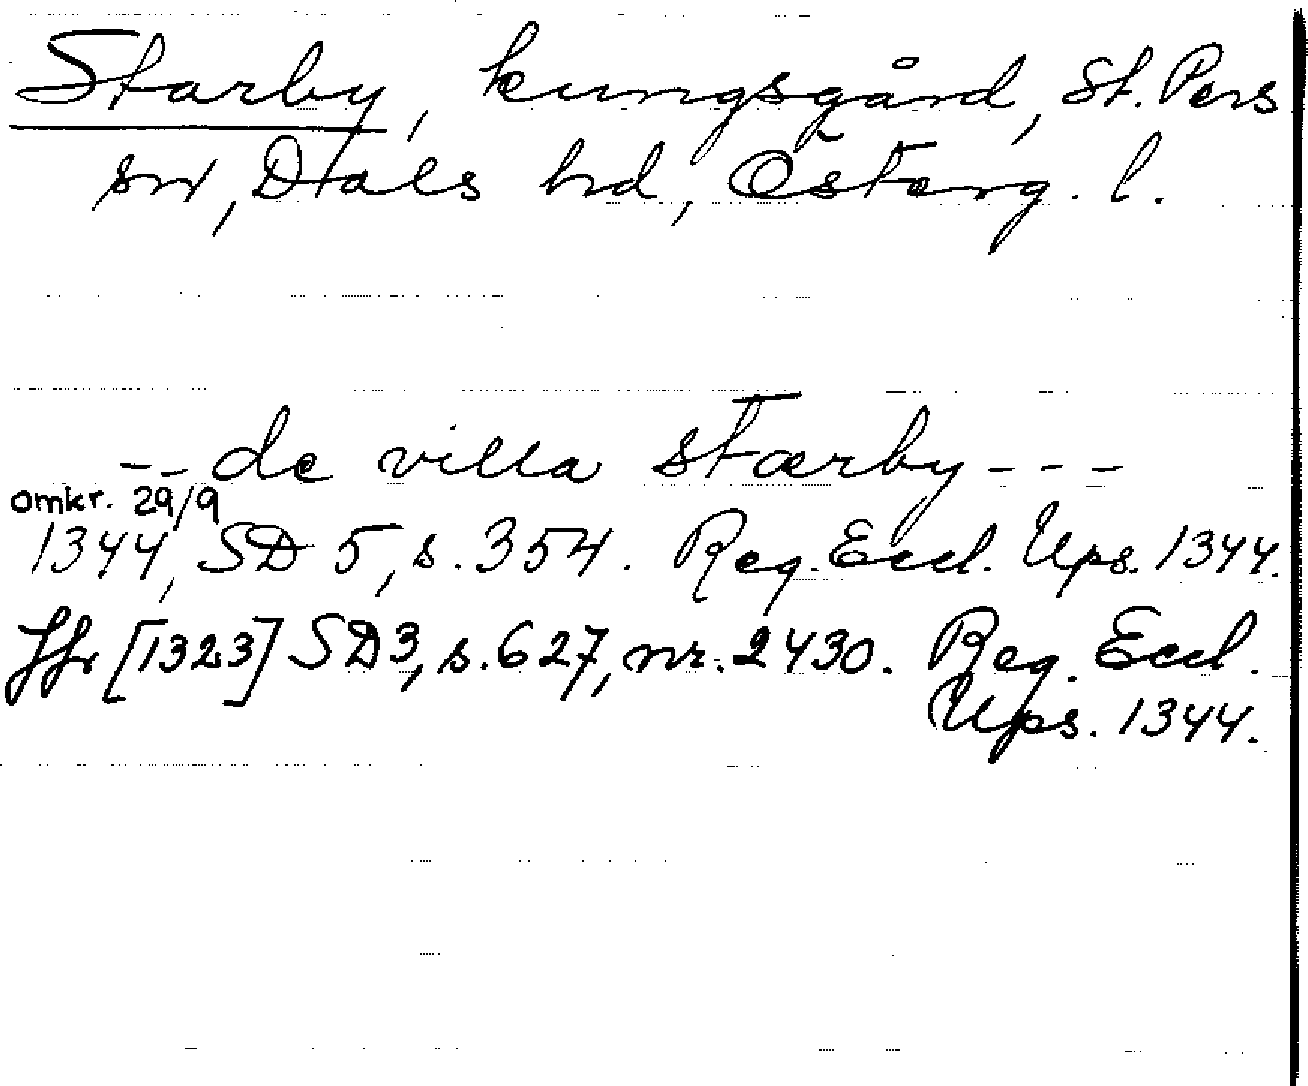 Starby, kungsgård, St. Pers
sn, Dals hd, Österg. l.
-- de villa stærby ---
omkr. 29/9
1344, SD 5, s. 354. Reg. Eccl. Ups. 1344.
Jfr [1323] SD 3, s. 627, nr. 2430. Reg. Eccl.
Ups. 1344.